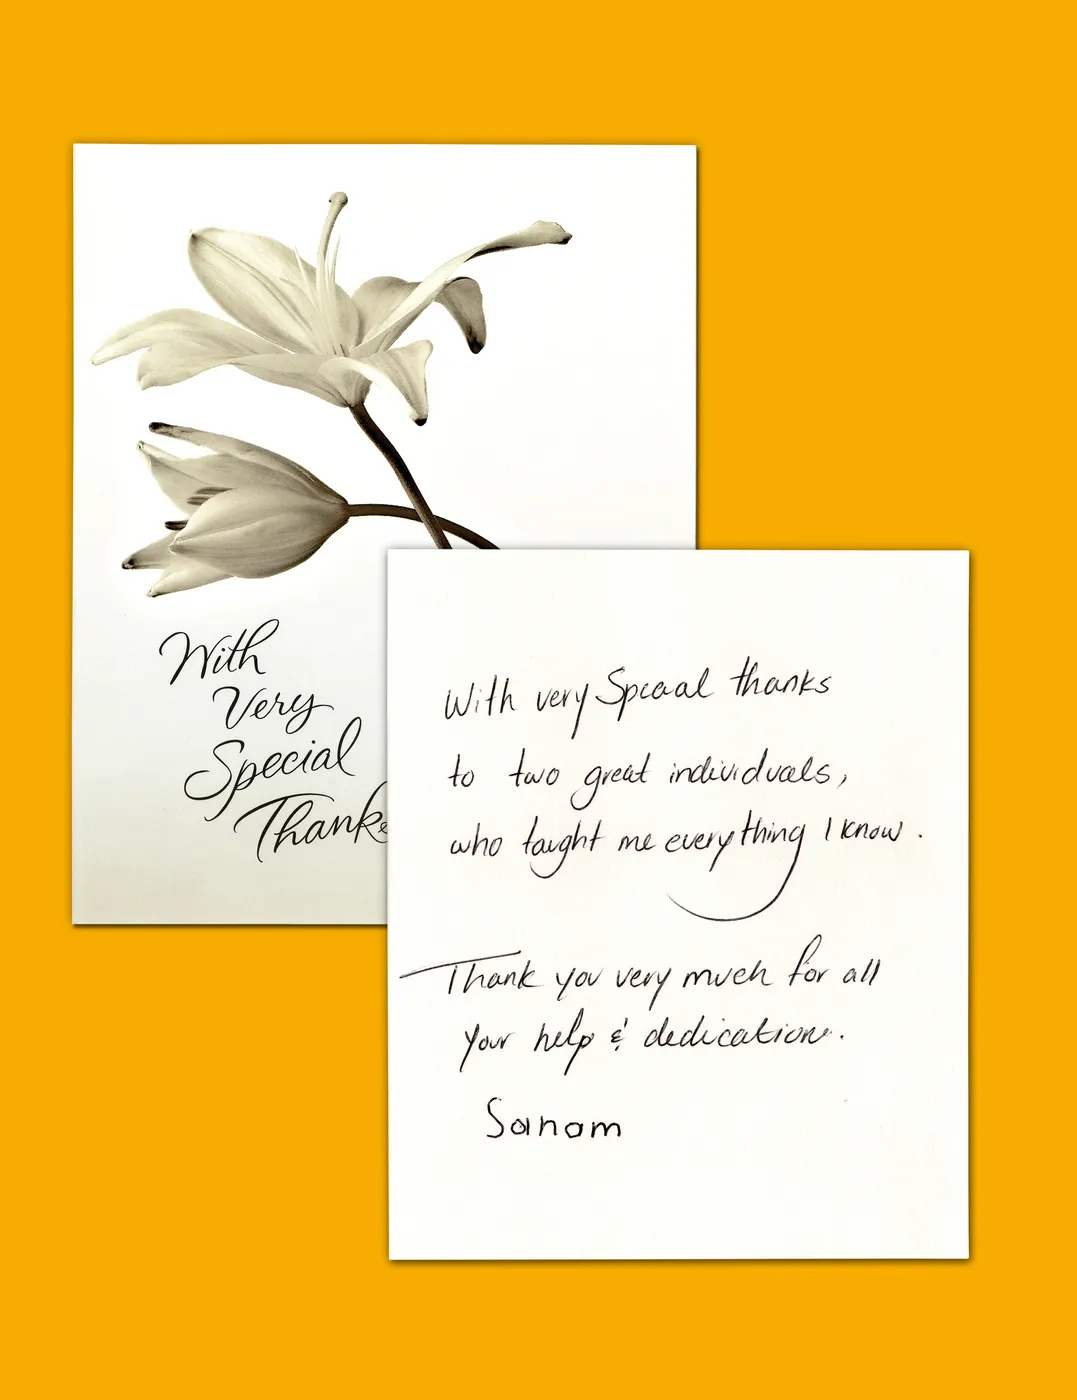 With
Very
Special
Thanks
With very Special thanks
to two great individuals,
who taught me everything I know.
Thank you very much for all
your help & dedication.
Sanam